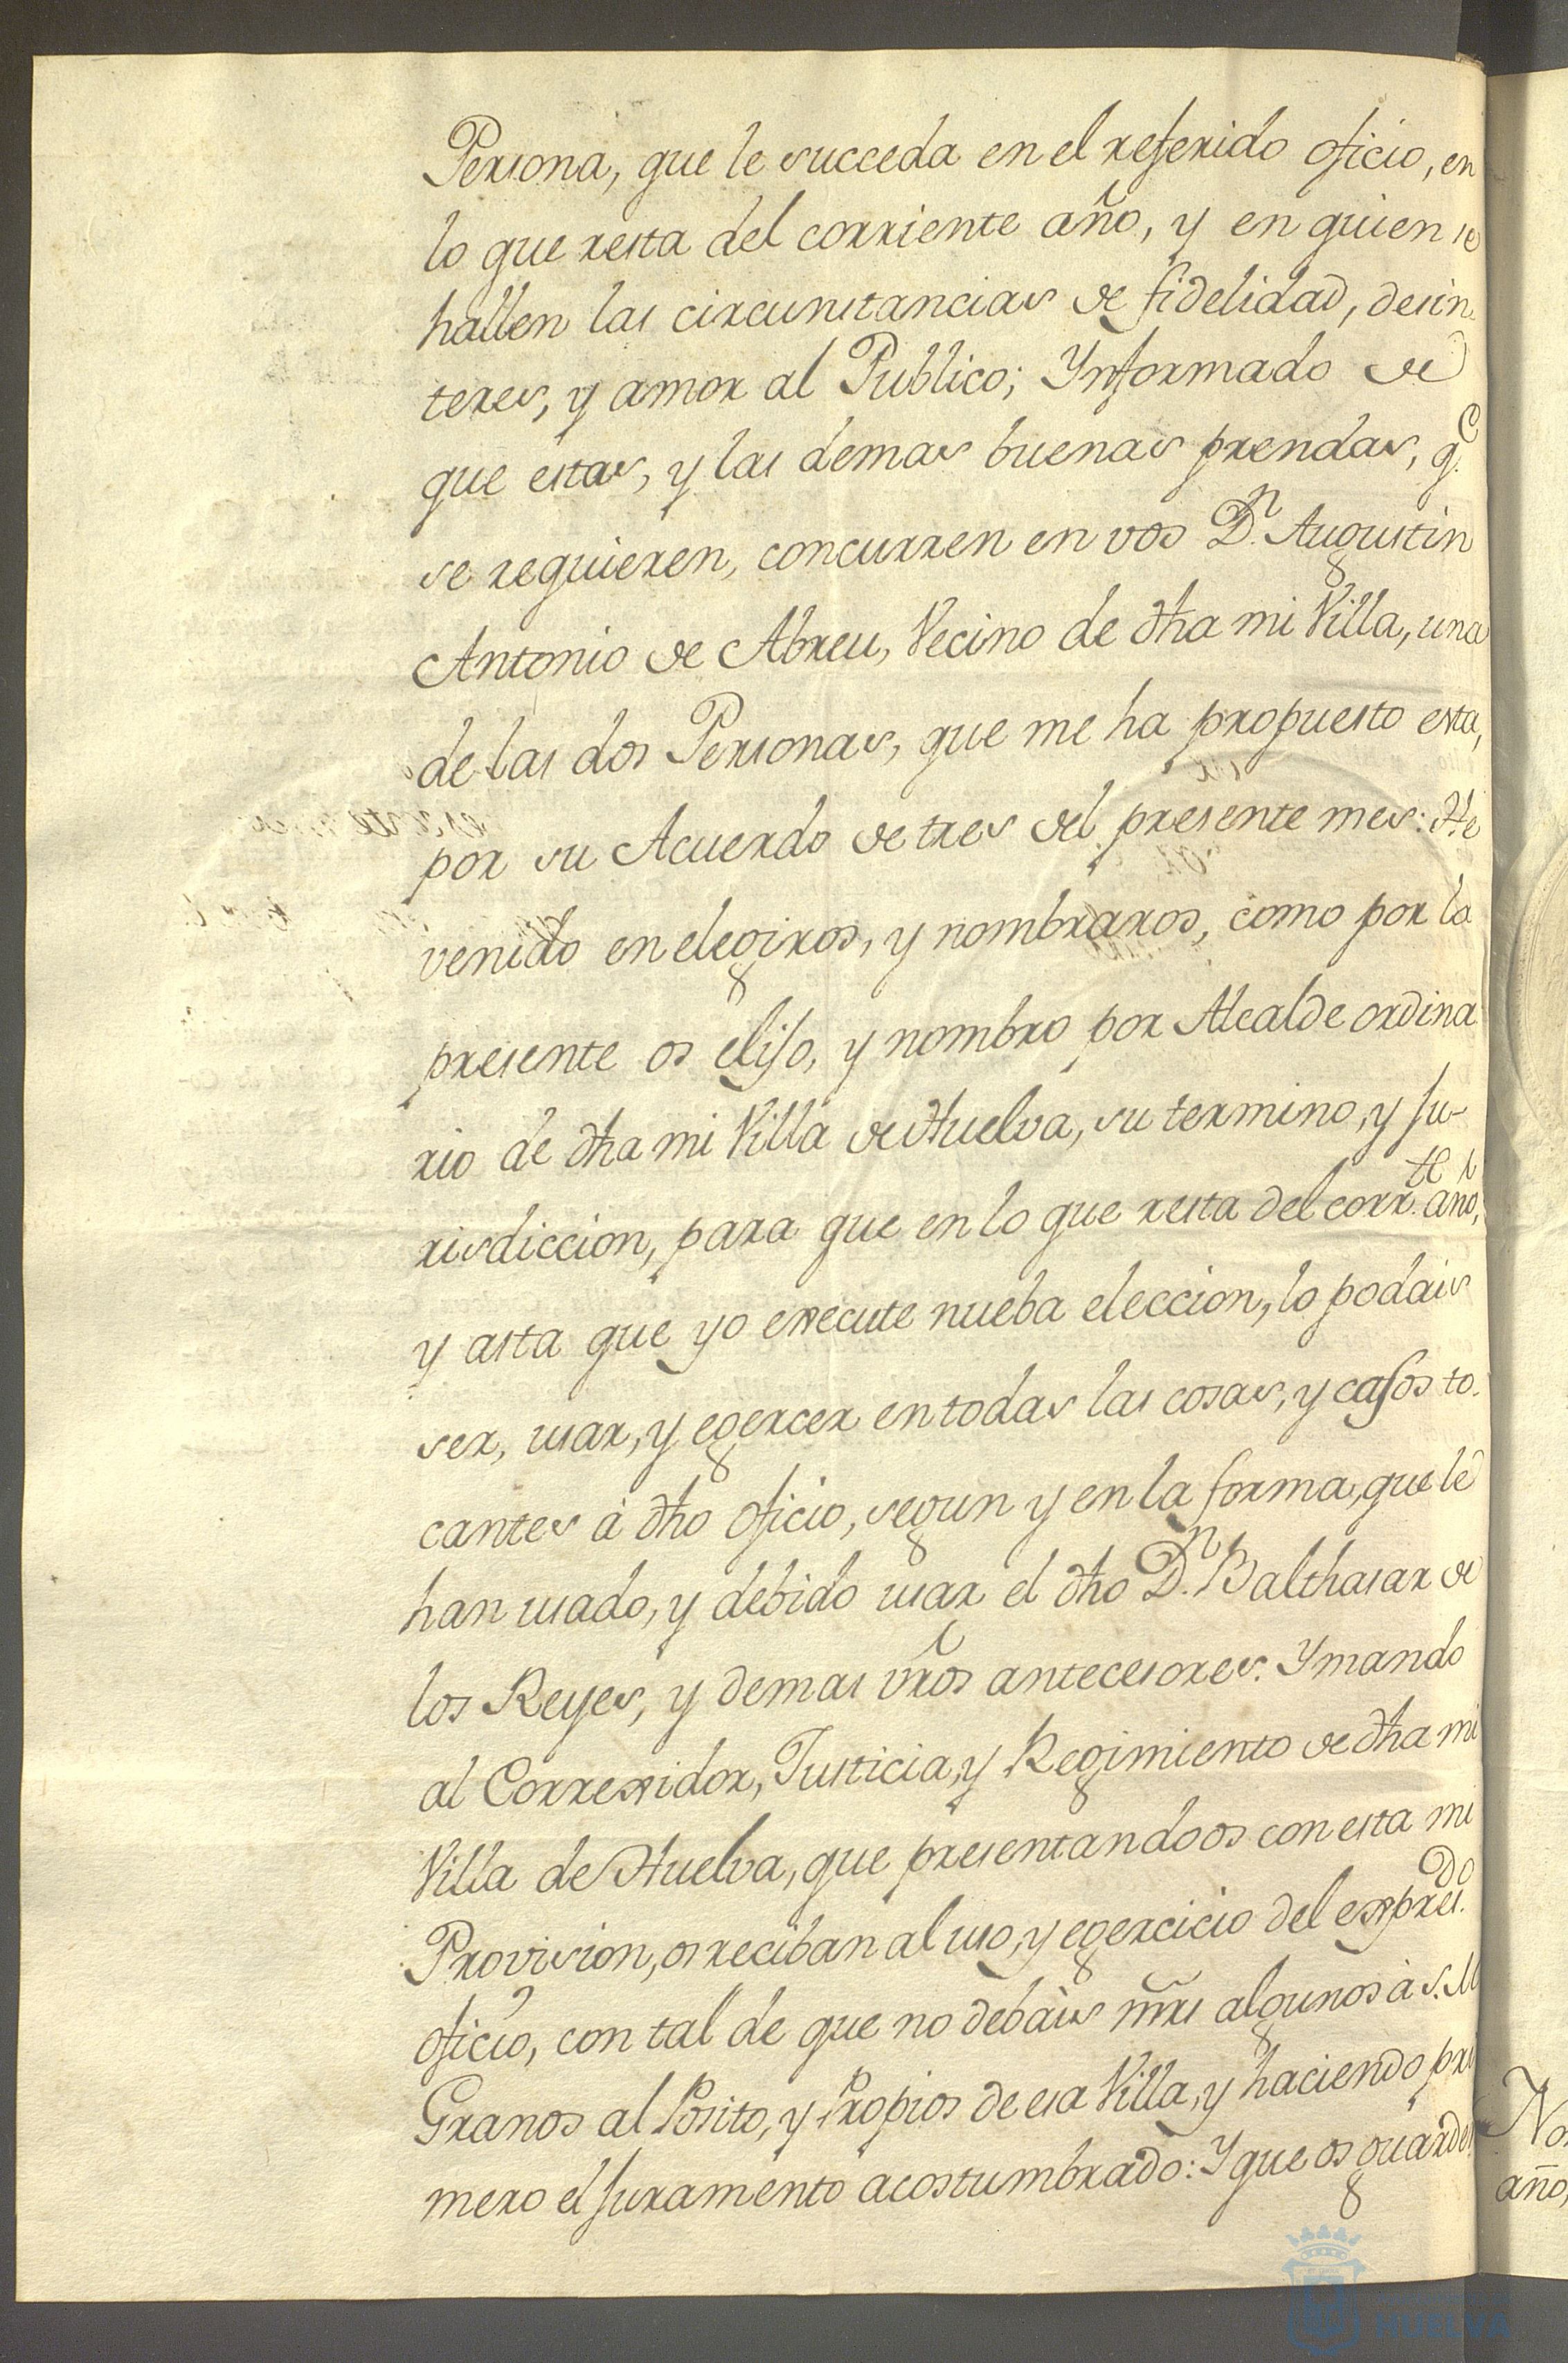 Persona, que le succeda en el referido oficio, en
lo que resta del corriente año, y en quien se
hallen las circunstancias de fidelidad, desin-
teres, y amor al Publico; Ynformado de
que estas, y las demas buenas prendas, q.e
se requieren, concurren en vos D.n Augustin
Antonio de Abreu, Vecino de dha mi Villa, una
de las dos Personas, que me ha propuesto esta,
por su Acuerdo de tres del presente mes: He
venido en elegiros, y nombraros, como por la
presente os elijo, y nombro por Alcalde ordina
rio de dha mi Villa de Huelva, su termino, y Ju-
risdiccion, para que en lo que resta del corr.te año,
y asta que yo execute nueba eleccion, lo podais
ser, usar, y egercer en todas las cosas, y casos to-
cantes à dho oficio, segun y en la forma, que le
han usado, y debido usar el dho D.n Balthasar de
los Reyes, y demas vros antecesores. Y mando
al Correxidor, Justicia, y Regimiento de dha mi
Villa de Huelva, que presentandoos con esta mi
Provision, os reciban al uso, y egercicio del expres.do
oficio, con tal de que no debàis mrs algunos à S. M
Granos al Pòsito, y Propios de esa Villa, y haciendo pri
mero el Juramento acostumbrado: Y que os guarden
No
año,
HUELVA